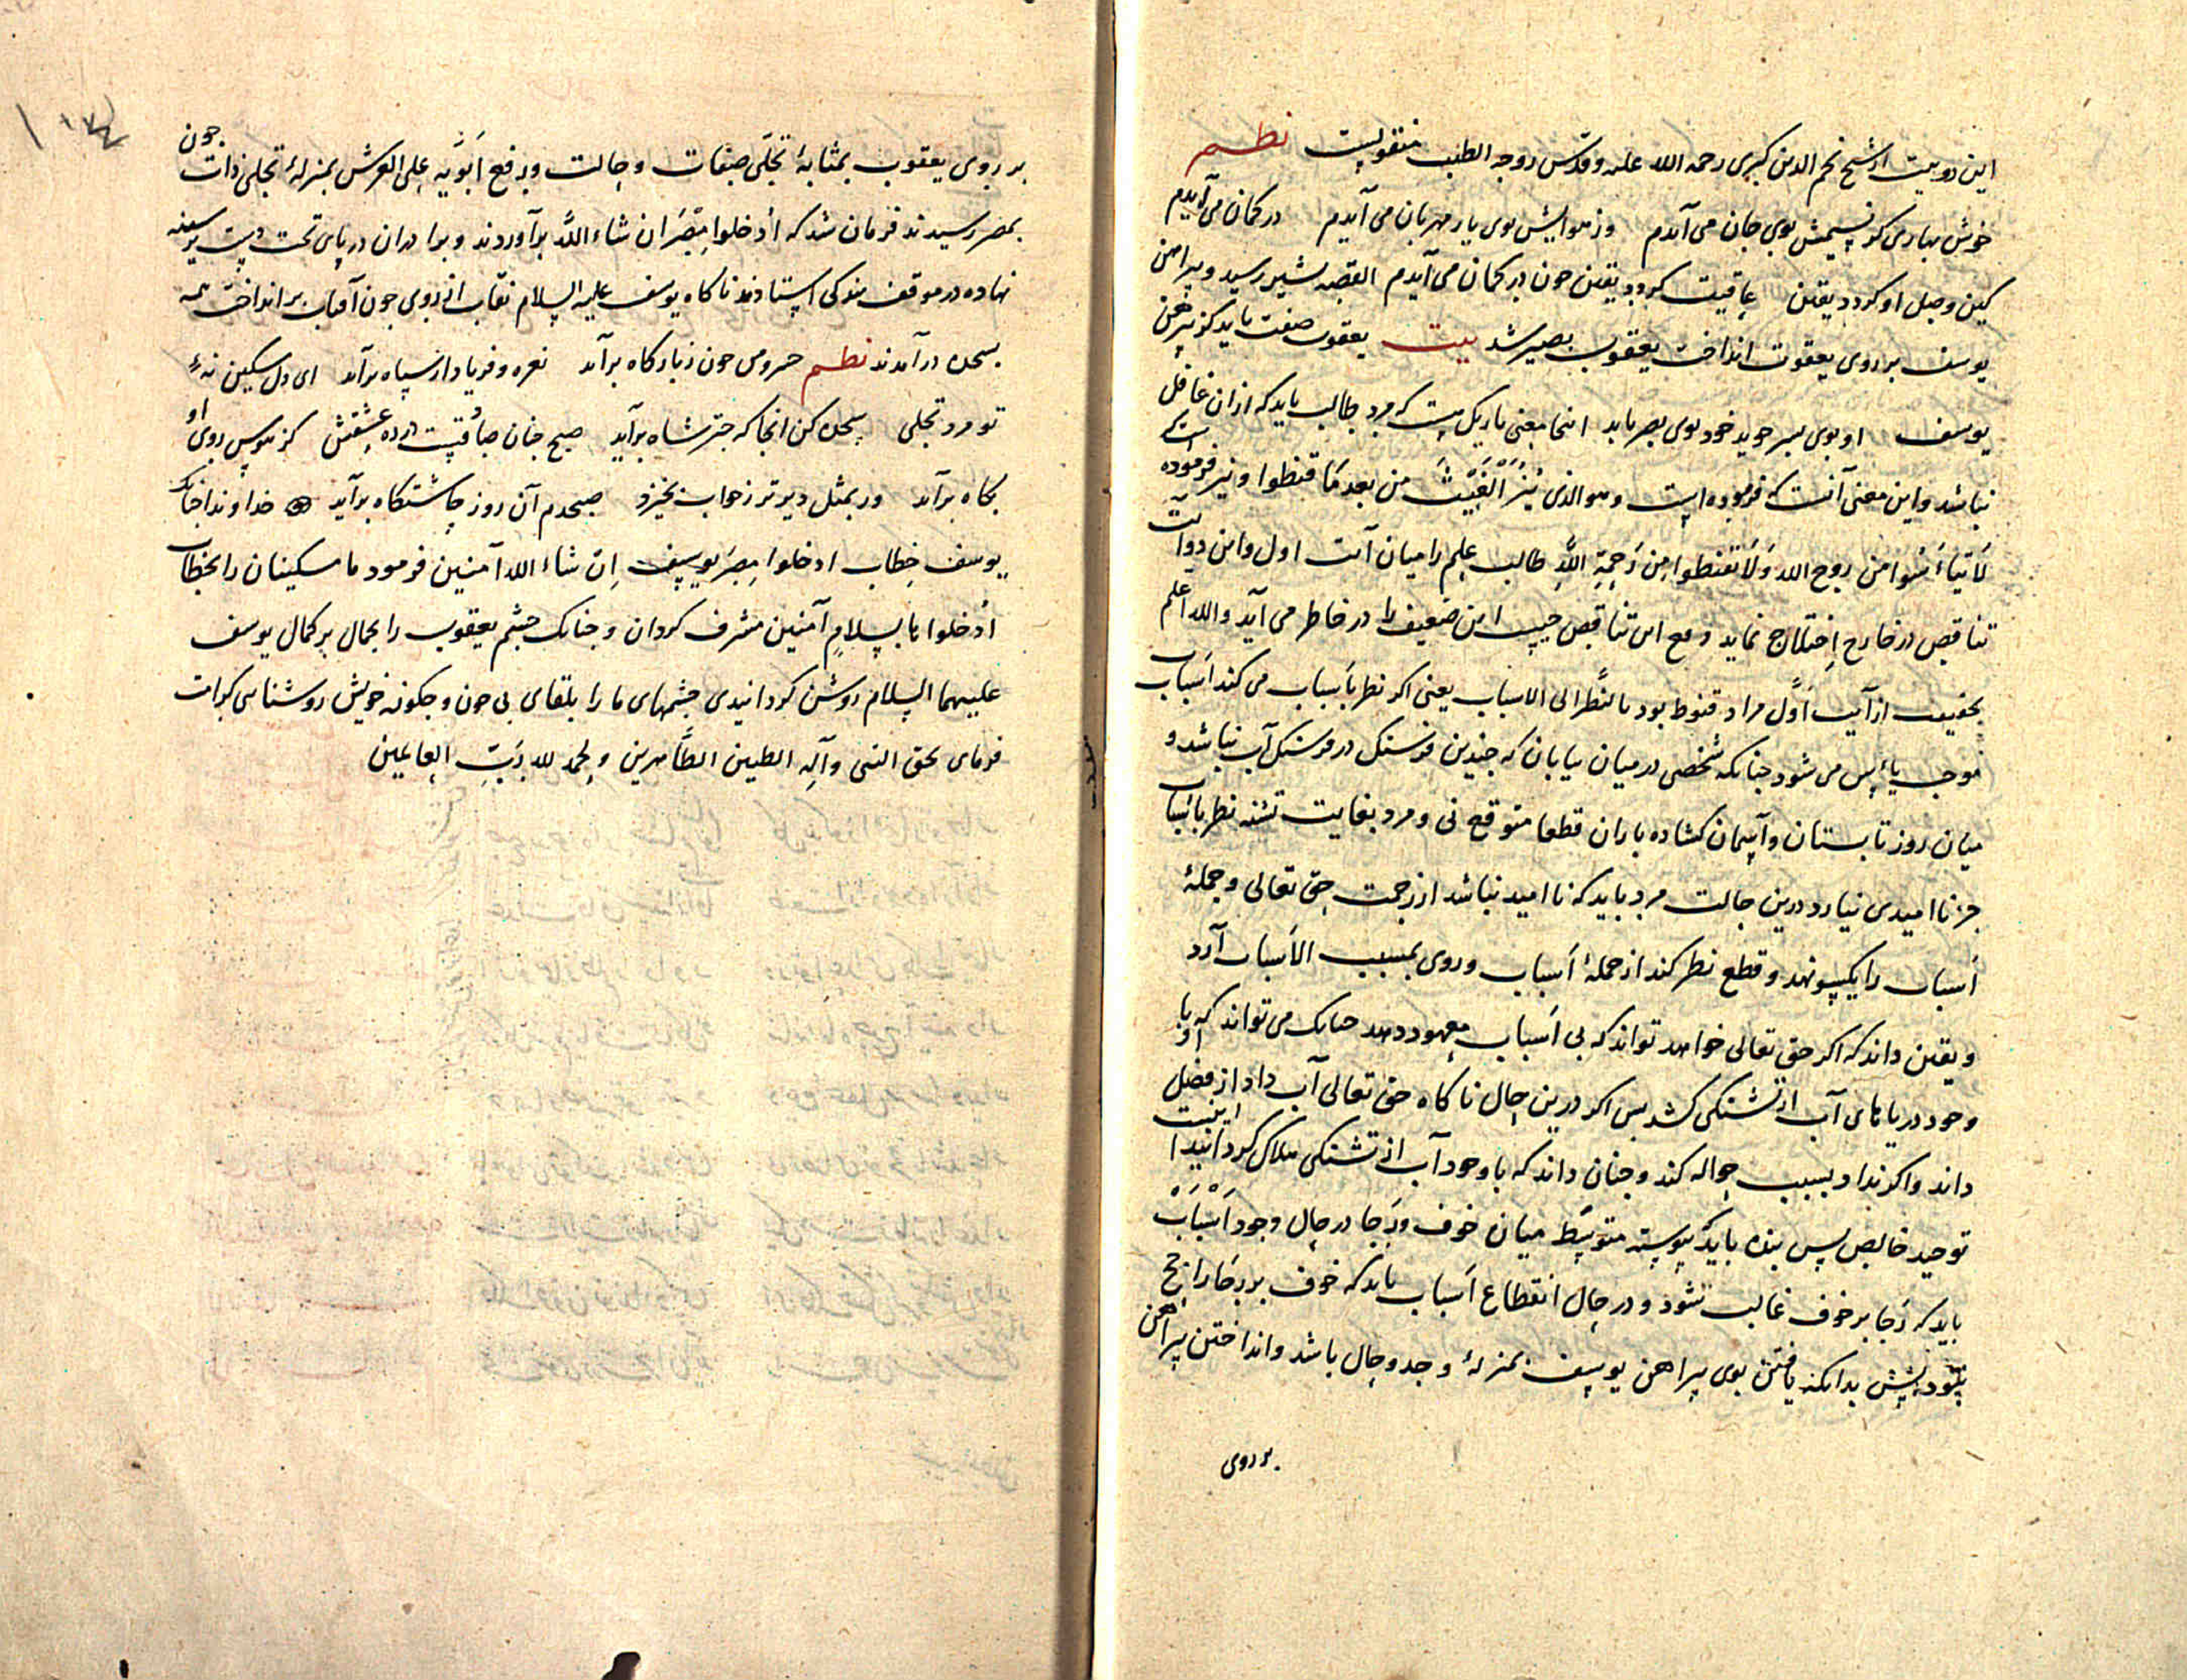 این دو بیت از شیخ نجم الدین کبری رحمه الله علیه و قدّس روحه الطیب منقولست نظم
خوش بهاری کز نسیمش بوی جان می آیدم وز هوایش بوی یار مهربان می آیدم در کمان می آیدم
کین وصل او کردد یقین عاقبت کردد یقین چون در کمان می آیدم القصه بشیر رسید و پیراهن
یوسف بر روی یعقوب انداخت یعقوب بصیر شد بیت یعقوب صفت باید کز پیرهن
یوسف او بوی پسر جوید خود بوی بصر یابد اینجا معنی باریک هست که مرد طالب باید که ازان غافل
نباشد و این معنی آنست که فرموده است وهو الذی ینزل الغیث من بعد ما قنطوا و نیز فرموده است
لا تیأسوا من روح الله ولا تقنطوا من رحمة الله طالب علم را میان آیت اول و این دو آیت
تناقض در خارج اختلاج نماید دفع این تناقض چیست این ضعیف را در خاطر می آید والله اعلم
بحقیقت از آیت اول مراد قنوط بود بالنظر الی الاسباب یعنی اکر نظر باسباب می کند اسباب
موجب یأس می شود چنانکه شخصی در میان بیابان که چندین فرسنک در فرسنک آب نباشد و
میان روز تابستان و آسمان کشاده باران قطعا متوقع نی و مرد بغایت تشنه نظر باسباب
جز ناامیدی نیارد درین حالت مرد باید که ناامید نباشد از رحمت حق تعالی و جملهٔ
اسباب را یکسو نهد و قطع نظر کند از جملهٔ اسباب و روی بمسبب الاسباب آرد
و یقین داند که اکر حق تعالی خواهد تواند که بی اسباب معهود دهد چنانک می تواند که او را با
وجود دریاهای آب از تشنکی کشد پس اکر درین حال ناکاه حق تعالی آب داد از فضل
داند و اکر نداد بسبب حواله کند و چنان داند که با وجود آب از تشنکی هلاک کردانید اینست
توحید خالص پس بنده باید که پیوسته متوسط میان خوف و رجا در حال وجود اسباب
باید که رجا بر خوف غالب نشود و در حال انقطاع اسباب باید که خوف بر رجا راجح
نشود پیش بدانکه یافتن بوی پیراهن یوسف بمنزلهٔ وجد و حال باشد و انداختن پیراهن
بر روی
بر روی یعقوب بمثابهٔ تجلی صفات و حالت و رفع ابویه علی العرش بمنزلهٔ تجلی ذات چون
بمصر رسیدند فرمان شد که أدخلوا مصر ان شاء الله برآوردند و برادران در پای تخت دست بر سینه
نهاده در موقف ملوکی استادند ناکاه یوسف علیه السلام نقاب از روی چون آفتاب برانداخت همه
بسجده درآمدند نظم خسرو من چون زبارکاه برآید نعره و فریاد از سپاه برآید ای دل مسکین نهٔ
تو مرد تجلی سجده کن انجا که چتر شاه برآید صبح چنان صادقست در ره عشقش کز هوس روی او
بکاه برآید ور بمثل دیرتر زخواب بخیزد صبحدم آن روز چاشتکاه برآید خداوندا چنانک
یوسف خطاب ادخلوا مصر یوسف إن شاء الله آمنین فرمود ما مسکینان را بخطاب
أدخلوها بسلام آمنین مشرف کردان و چنانک چشم یعقوب را بجمال بر کمال یوسف
علیهما السلام روشن کردانیدی چشمهای ما را بلقای بی چون و چکونه خویش روشنایی کرامت
فرمای بحق النبی وآله الطیبین الطاهرین والحمد لله رب العالمین